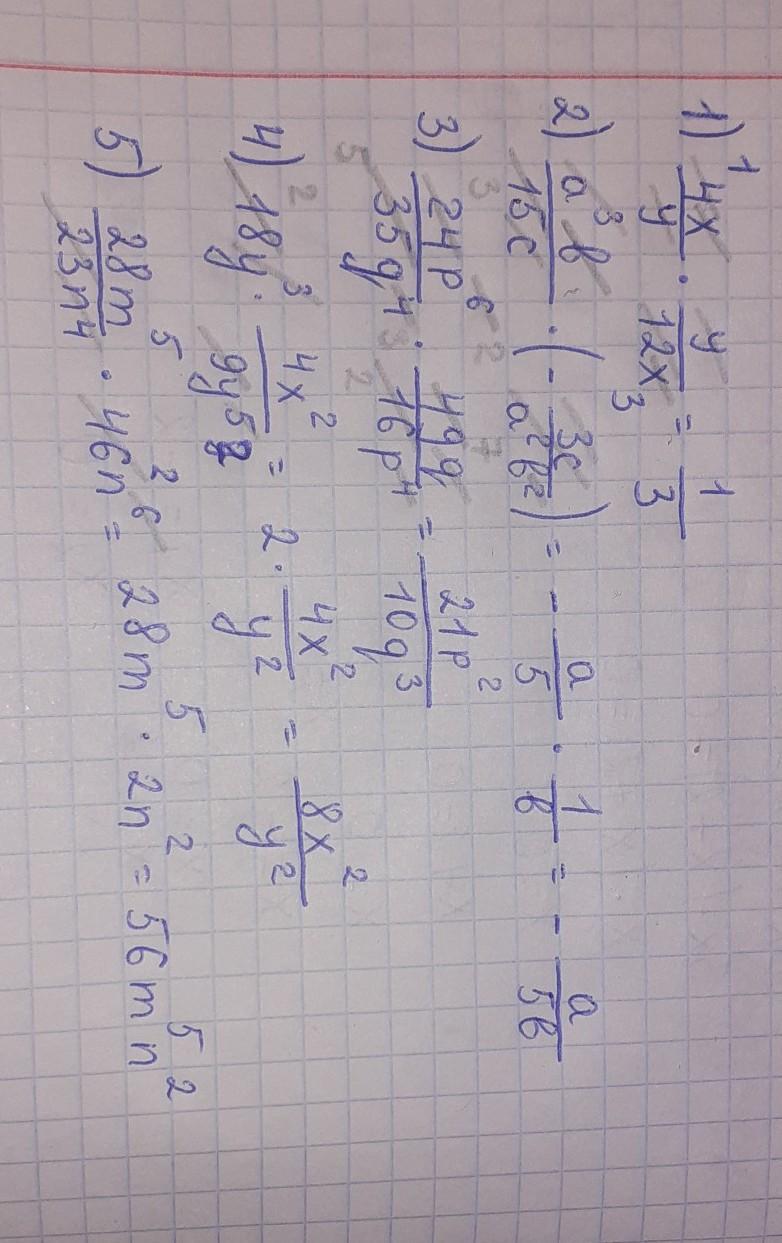 1) ¹ 4x/y · y/12x ₃ = 1/3
2) a³b/15c · (- 3c/a²b²) = - a/5 · 1/b = - a/5b
3) 24p⁶/35q⁴ · 49q/16p⁴ = 21p²/10q³
4) 18y³ · 4x²/9y⁵ = 2 · 4x²/y² = 8x²/y²
5) 28m⁵/23n⁴ · 46n⁶ = 28m⁵ · 2n² = 56m⁵n²